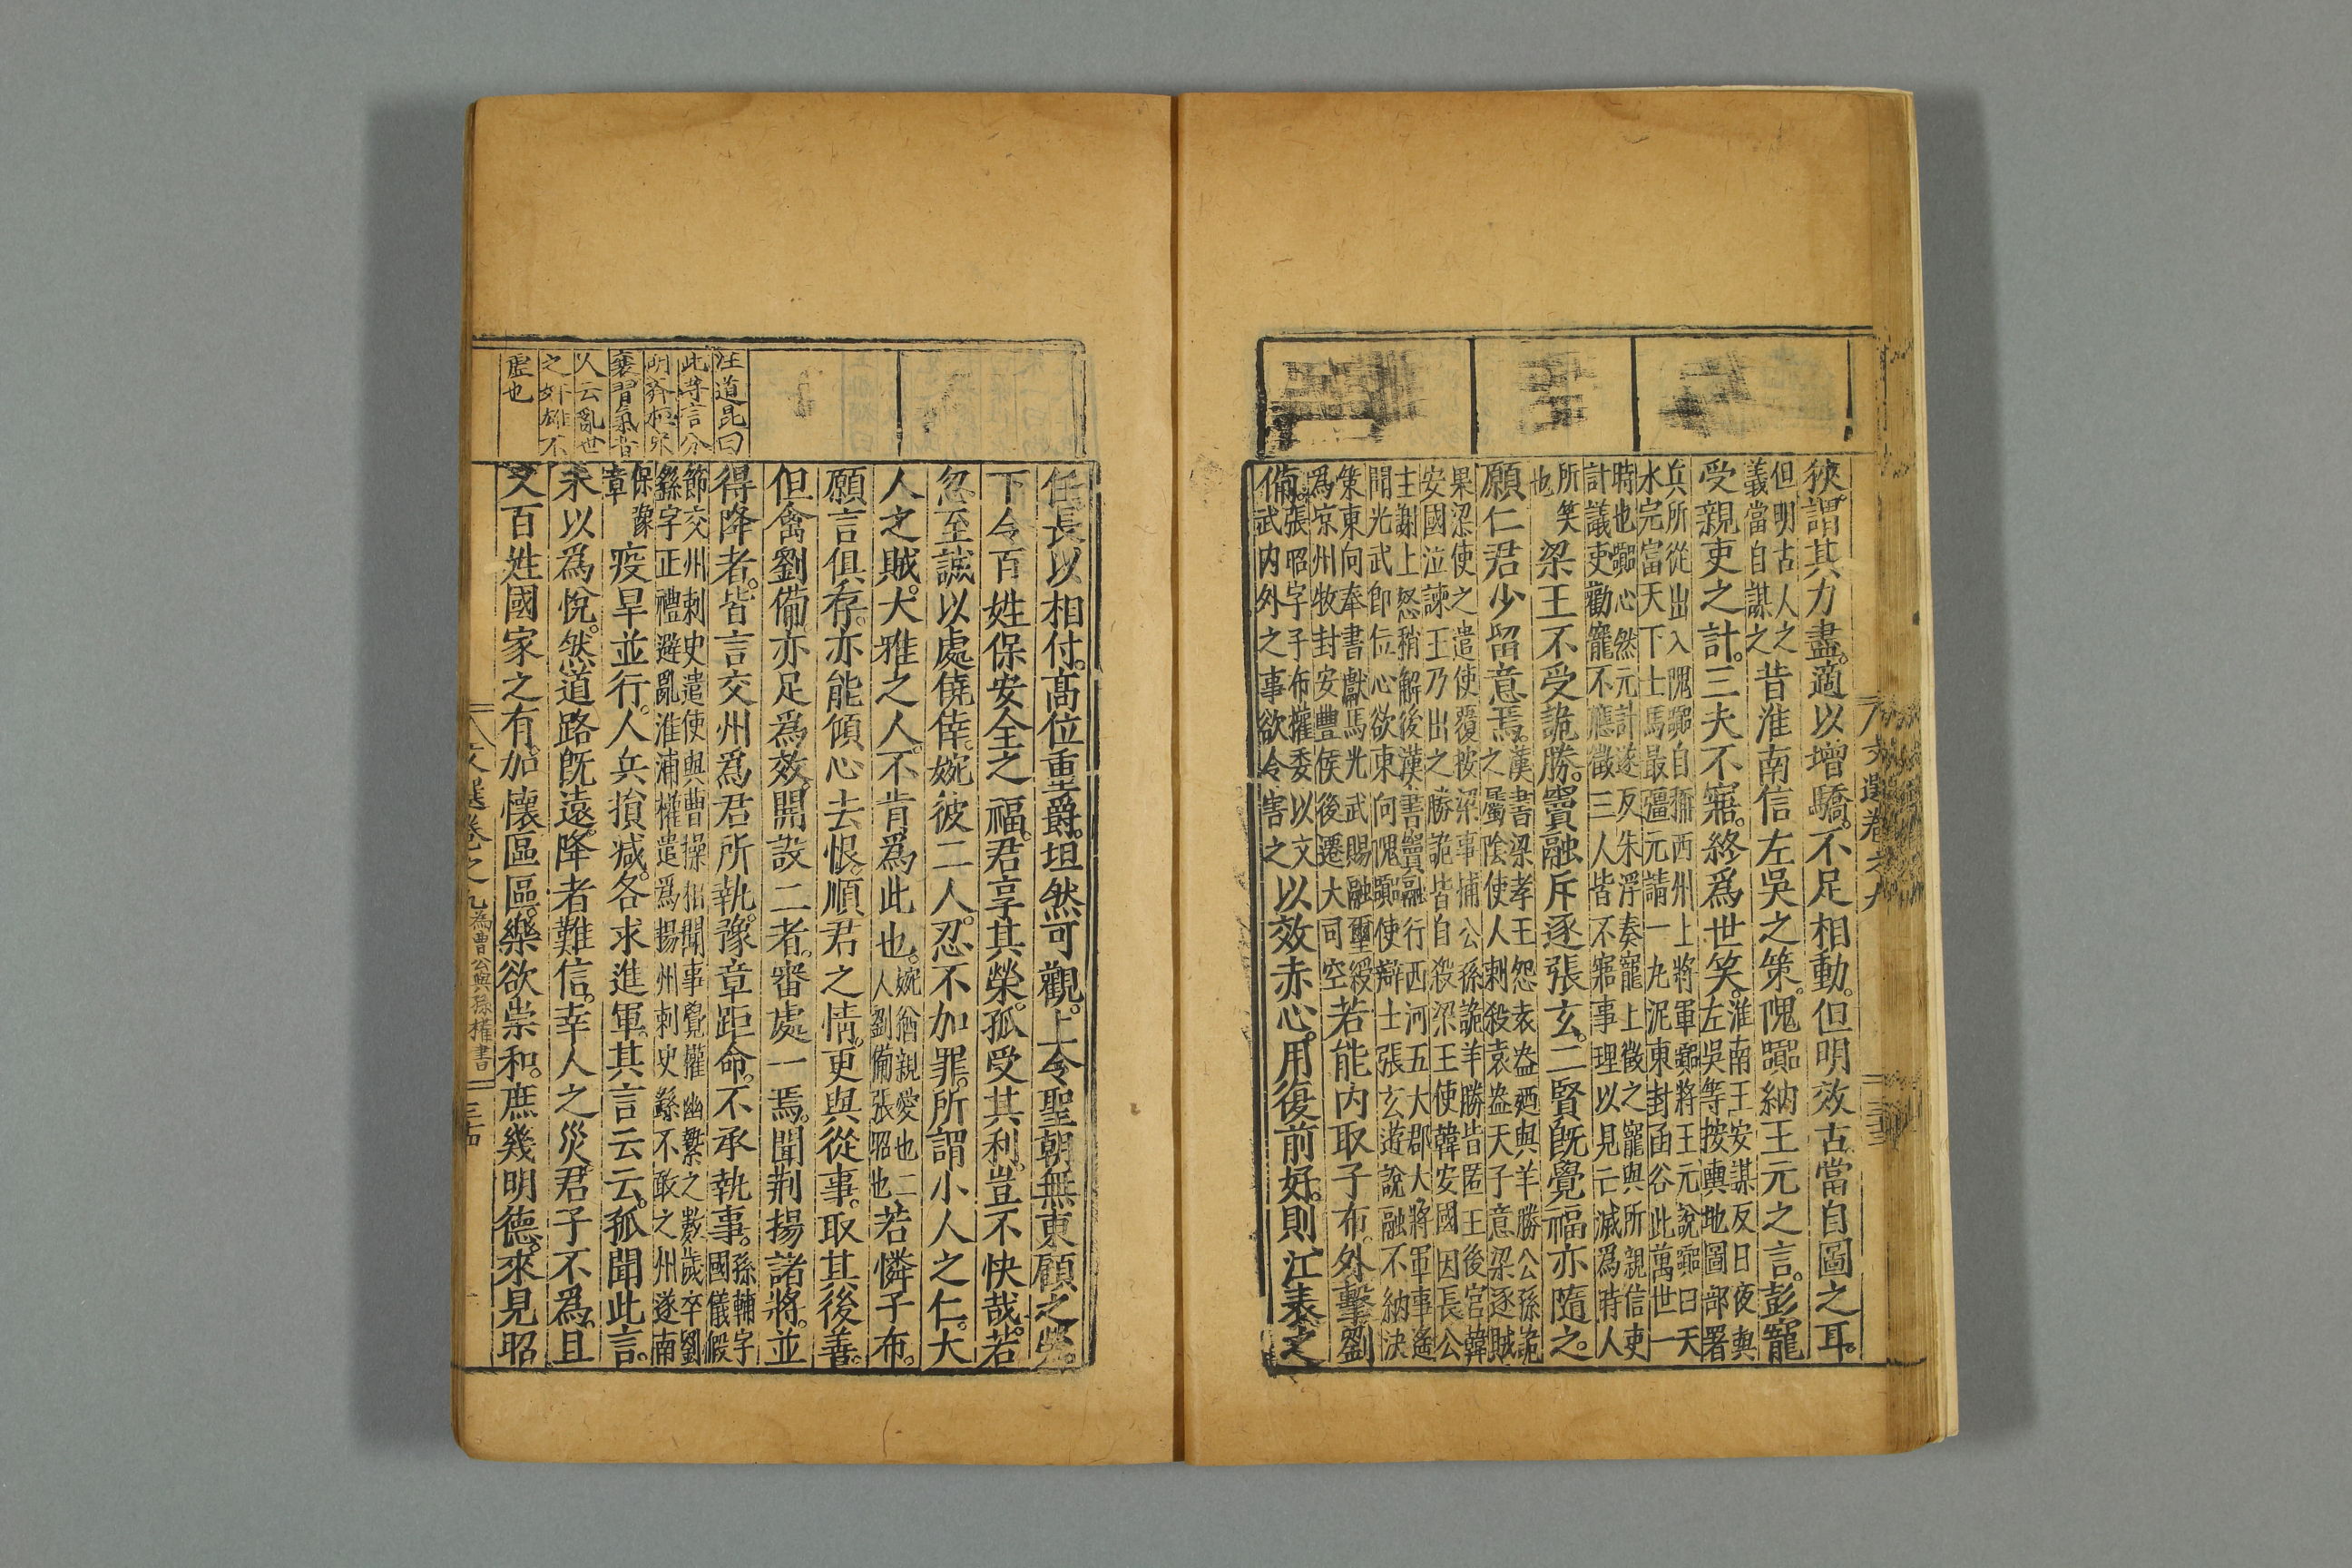 狹謂其力盡適以增驕不足相動但明效古當自圖之耳
但明古人之
義當自謀之
昔淮南信左吳之策隗囂納王元之言彭寵
受親吏之計三夫不寤終爲世笑
淮南王安謀反日夜與
左吳等按輿地圖部署
兵所從出入隗囂自稱西州上將軍囂將王元說囂曰天
水完富天下士馬最彊元請一丸泥東封函谷此萬世一
時也囂心然元計遂反朱浮奏寵上徵之寵與所親信吏
計議吏勸寵不應徵三人皆不寤事理以見亡滅爲時人
所笑
也
梁王不受詭勝竇融斥逐張玄二賢旣覺福亦隨之
願仁君少留意焉
漢書梁孝王怨袁盎廼與羊勝公孫詭
之屬陰使人刺殺袁盎天子意梁逐賊
果梁使之遣使覆按梁事捕公孫詭羊勝皆匿王後宮韓
安國泣諫王乃出之勝詭皆自殺梁王使韓安國因長公
主謝上怒稍解後漢書竇融行西河五大郡大將軍事遙
聞光武即位心欲東向隗囂使辯士張玄遊說融不納決
策東向奉書獻馬光武賜融璽綬
爲凉州牧封安豐侯後遷大司空
若能內取子布外擊劉
備
張昭字子布權委以文
武內外之事欲令害之
以效赤心用復前好則江表之
文選卷之九
三十三
任長以相付高位重爵坦然可觀上令聖朝無東顧之勞
下令百姓保安全之福君享其榮孤受其利豈不快哉若
忽至誠以處僥倖婉彼二人忍不加罪所謂小人之仁大
人之賊大雅之人不肯爲此也
婉猶親愛也二
人劉備張昭也
若憐子布
願言俱存亦能傾心去恨順君之情更與從事取其後善
但禽劉備亦足爲效開設二者審處一焉聞荆揚諸將並
得降者皆言交州爲君所執豫章距命不承執事
孫輔字
國儀假
節交州刺史遣使與曹操相聞事覺權幽繫之數歲卒劉
繇字正禮避亂淮浦權遣爲揚州刺史繇不敢之州遂南
保豫
章
疫旱並行人兵損减各求進軍其言云云孤聞此言
未以爲悅然道路旣遠降者難信幸人之災君子不爲且
又百姓國家之有加懷區區樂欲崇和庶幾明德來見昭
汪道昆曰
此等言分
明齊桓宋
襄習氣昔
人云亂世
之奸雄不
虛也
文選卷之九
為曹公與孫權書
三十四